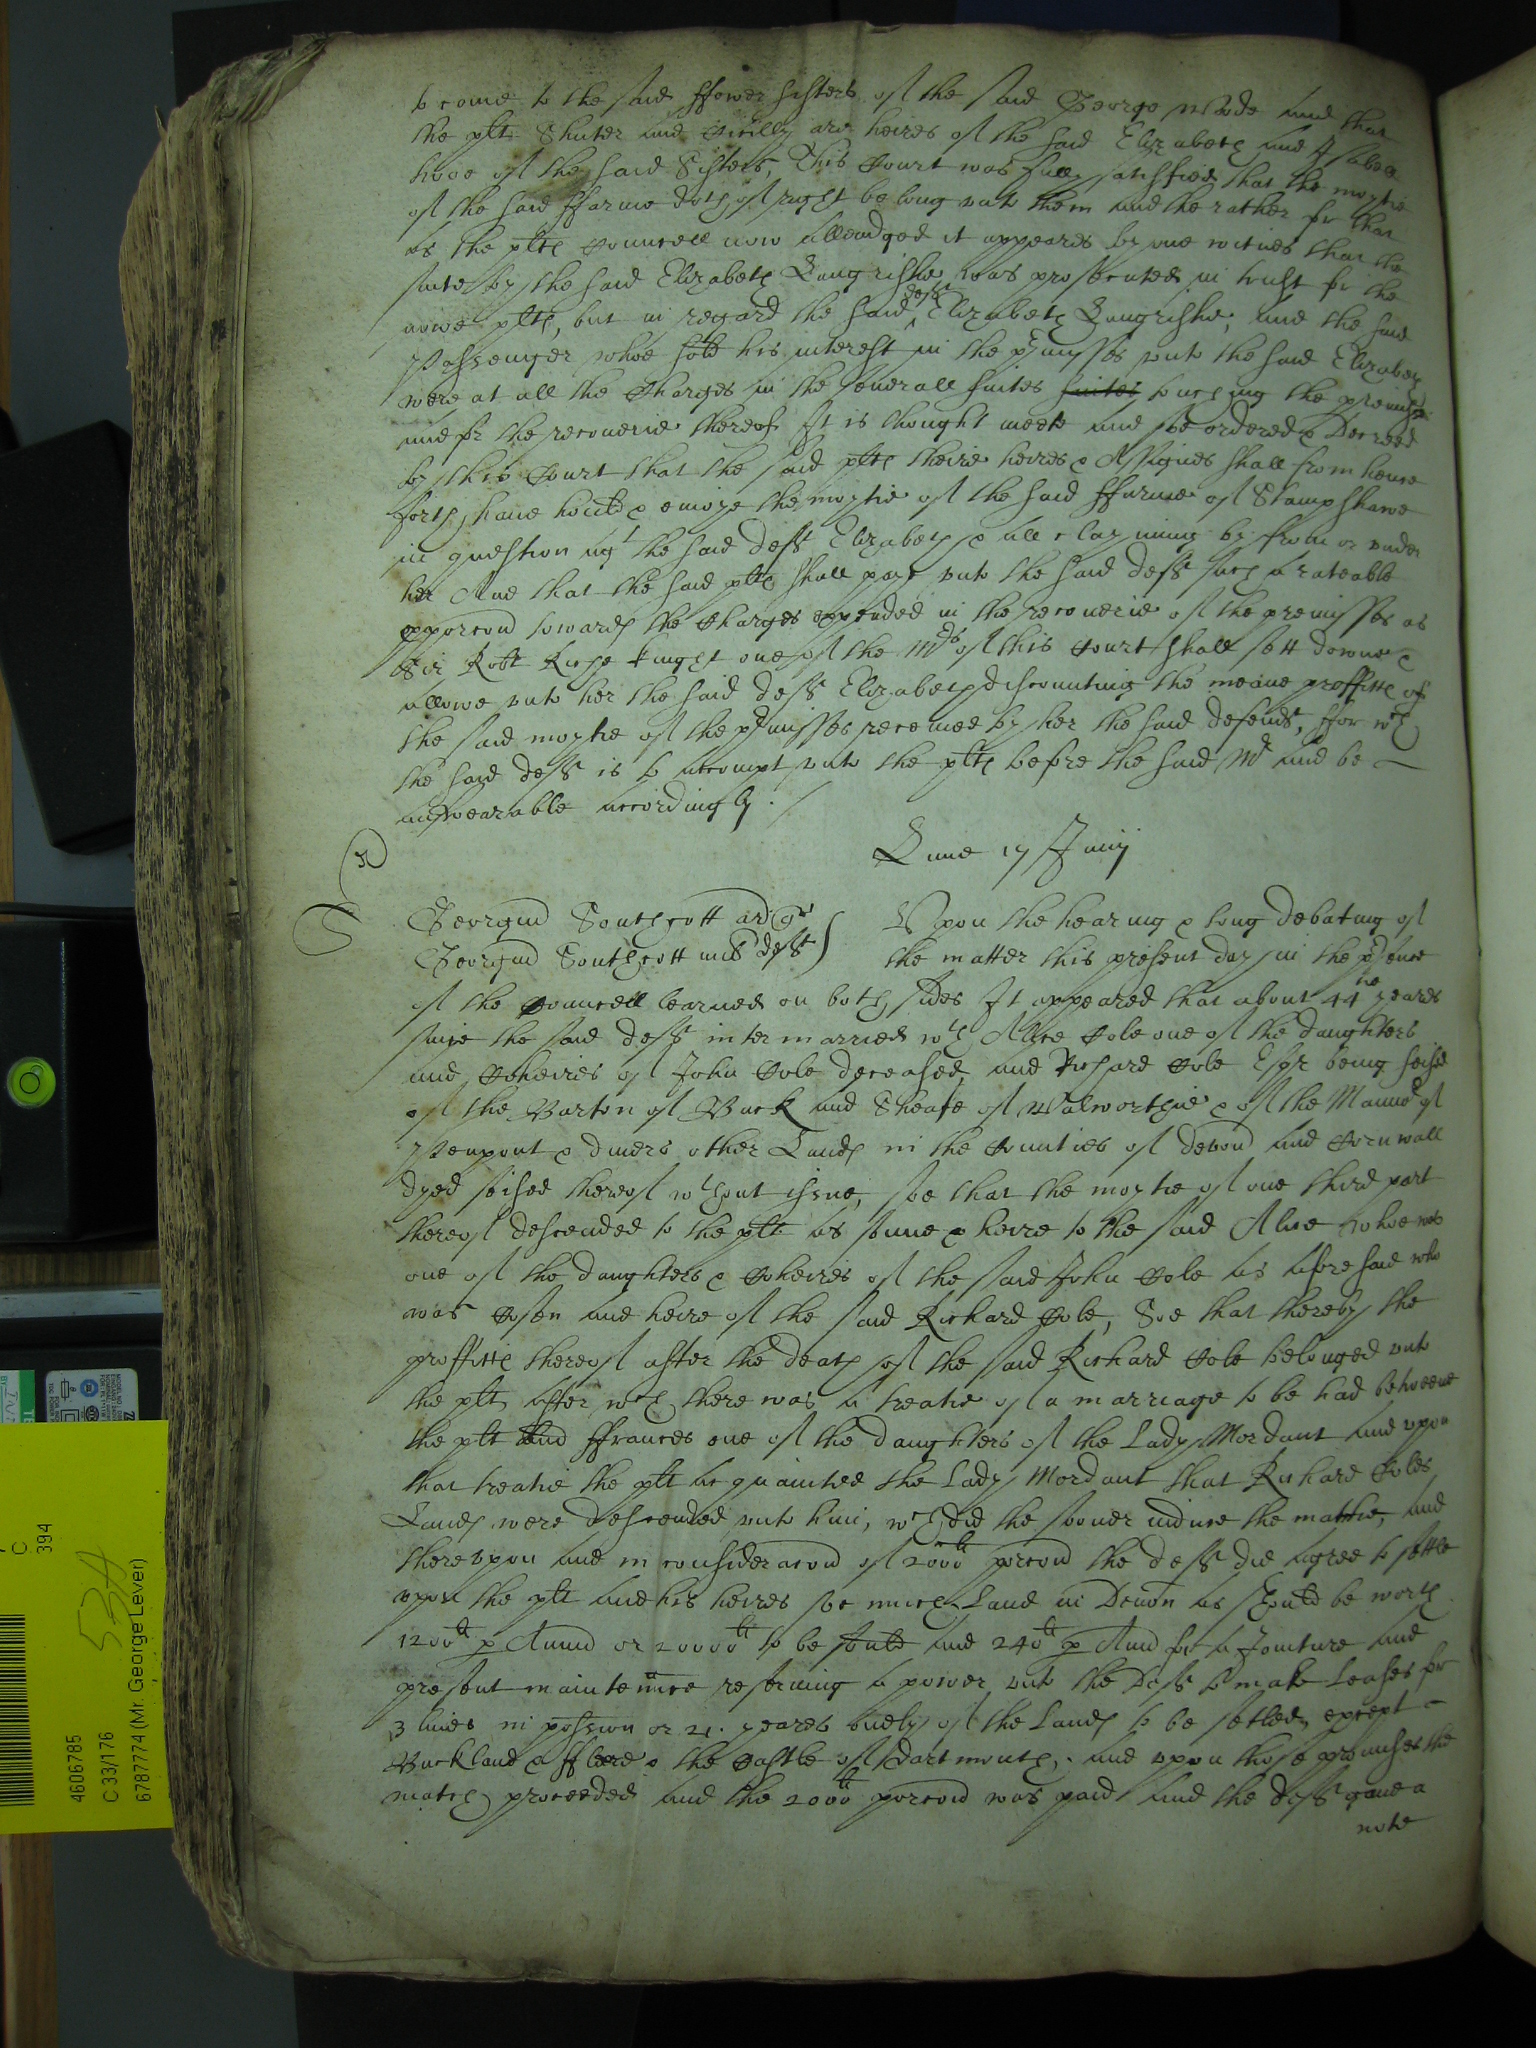 to come to the said ffower sisters of the said George Wade and that
the plts Shuter and Cicilly are heires of the said Elizabeth and Isabell
twoe of the said Sisters, This Court was fully satisfied that the moytie
of the said ffarme doth of right belong unto them and the rather for that
as the plts Councell now alleadged it appeares by one witnes that the
suite by the said Elizabeth Langrishe was prosecuted in trust for the
nowe plts, but in regard the said deft Elizabeth Langrishe, and the said
Passenger whoe sold his interest in the p'misses unto the said Elizabeth
were at all the Charges in the severall suites suites touching the premisses
and for the recouerie thereof It is thought meete and soe ordered & Decreed
by this Court that the said plts theire heires & Assignes shall from hence
forth haue hould & enioye the moytie of the said ffarme of Stampshawe
in question agt the said deft Elizabeth & all clayming by from or under
her And that the said plts shall paye unto the said deft such a rateable
proporcon towards the Charges expended in the recouerie of the premisses as
Sir Robt Riche knight one of the Mrs of this Court shall sett downe &
allowe unto her the said deft Elizabeth discounting the meane proffitts of
the said moytie of the p'misses receiued by her the said defendt, ffor wch
the said deft is to accompt unto the plts before the said Mr and be
answearable accordingly.
Lune 17 Junij
R
S
Georgius Southcott ar qr
Georgius Southcott mil deft
Upon the hearing & long debating of
the matter this present day in the p'sence
of the Councell learned on both sides It appeared that about 44tie yeares
since the said deft intermarried wth Alice Cole one of the daughters
and Coheires of John Cole deceased, and Richard Cole Esqr being seised
of the Barton of Buck and Sheafe of Walworthie & of the Mannor of
Penpont & divers other Lands in the Counties of Devon and Cornwall
dyed seised thereof wthout issue, soe that the moytie of one third part
thereof descended to the plt as sonne & heire to the said Alice whoe was
one of the daughters & Coheires of the said John Cole as aforesaid who
was Cosen and heire of the said Richard Cole, Soe that thereby the
proffitts thereof after the death of the said Richard Cole belonged unto
the plt, after wch there was a treatie of a marriage to be had betweene
the plt and ffrances one of the daughters of the Lady Mordant and upon
that treatie the plt acquainted the Lady Mordant that Richard Coles
Lands were descended unto him, wch did the sooner induce the matche, and
thereupon and in consideracon of 2000li porcon the deft did agree to settle
upon the plt and his heires soe much Land in Devon as should be worth
1200li p Annu or 20000li to be sould and 240li p Annu for a Jointure and
present maintennce reserving a power unto the Deft to make Leases for
3 lives in possion or 21. yeares onely of the Lands to be setled, except
Buckland & ffleere & the Castle of Dartmouth, and upon those promises the
match proceeded and the 2000li porcon was paid And the deft gaue a
note
C
394
53A
4606785
C 33/176
6787774 (Mr. George Lever)